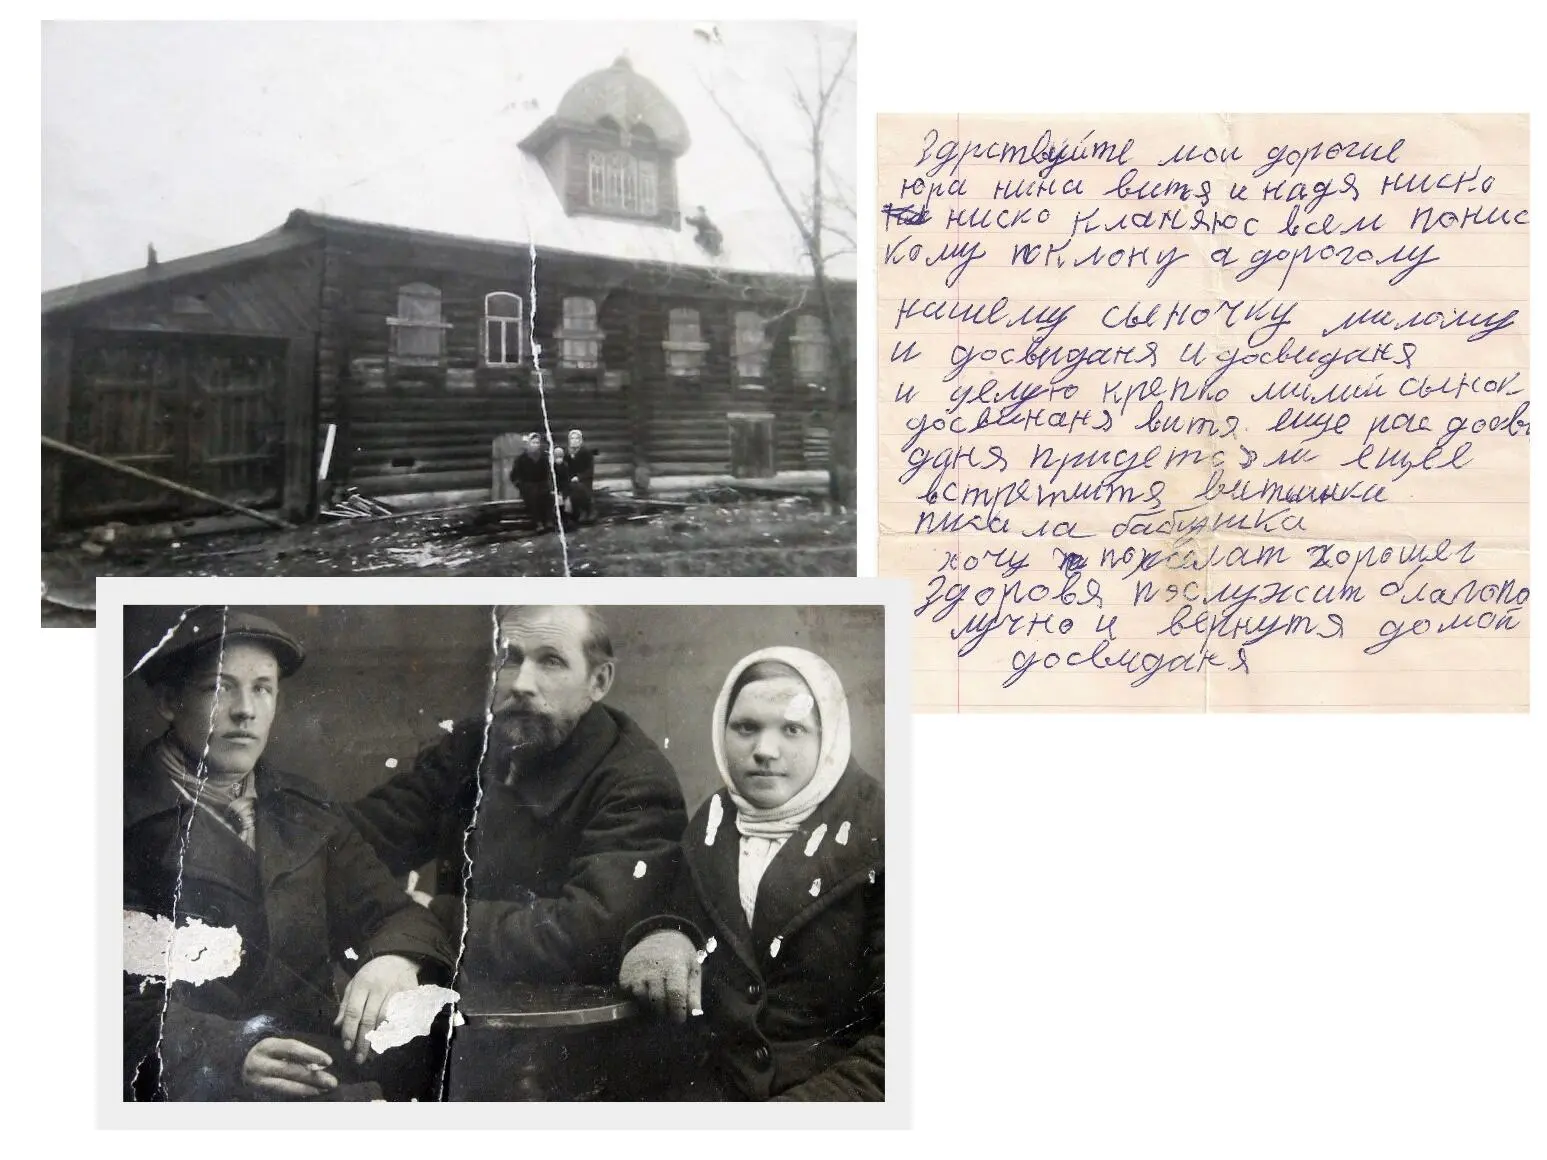 Здрствуйте мои дорогие
юра нина витя и надя ниско
ниско кланяюс всем понис
кому поклону а дорогому
нашему сыночку милому
и досвиданя и досвиданя
и целую крепко милий сынок
досвинаня витя еще рас досви
даня придетс эли ещее
встретитя витинка
писала бабушка
хочу пожелат хорошег
здоровя послужит благопо
лучно и вернутя домой
досвиданя